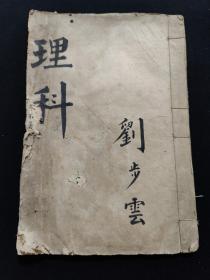 理科
劉步雲